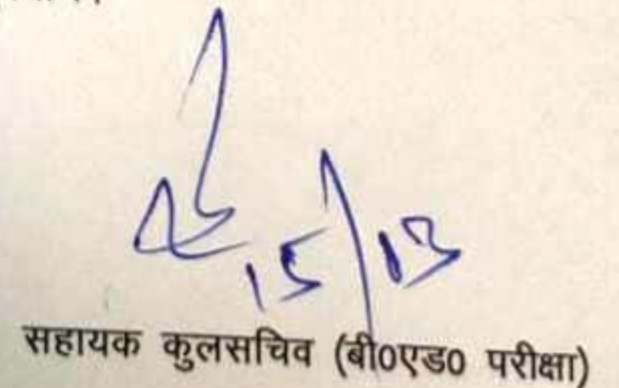 15/13
सहायक कुलसचिव (बी0एड0 परीक्षा)